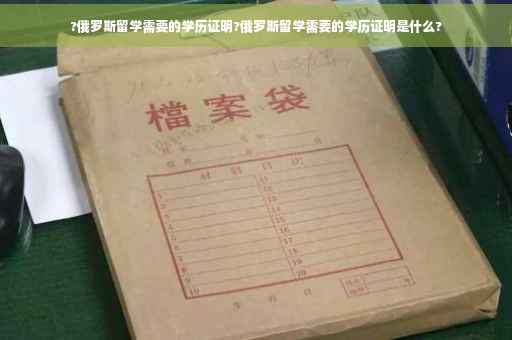 ?俄罗斯留学需要的学历证明?俄罗斯留学需要的学历证明是什么?
檔案袋
材料目次
1 11
2 12
3 13
4 14
5 15
6 16
7 17
8 18
9 19
10 20
年 月 日